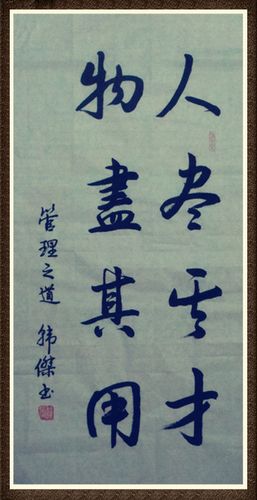 人尽其才
物盡其用
管理之道 韩傑书